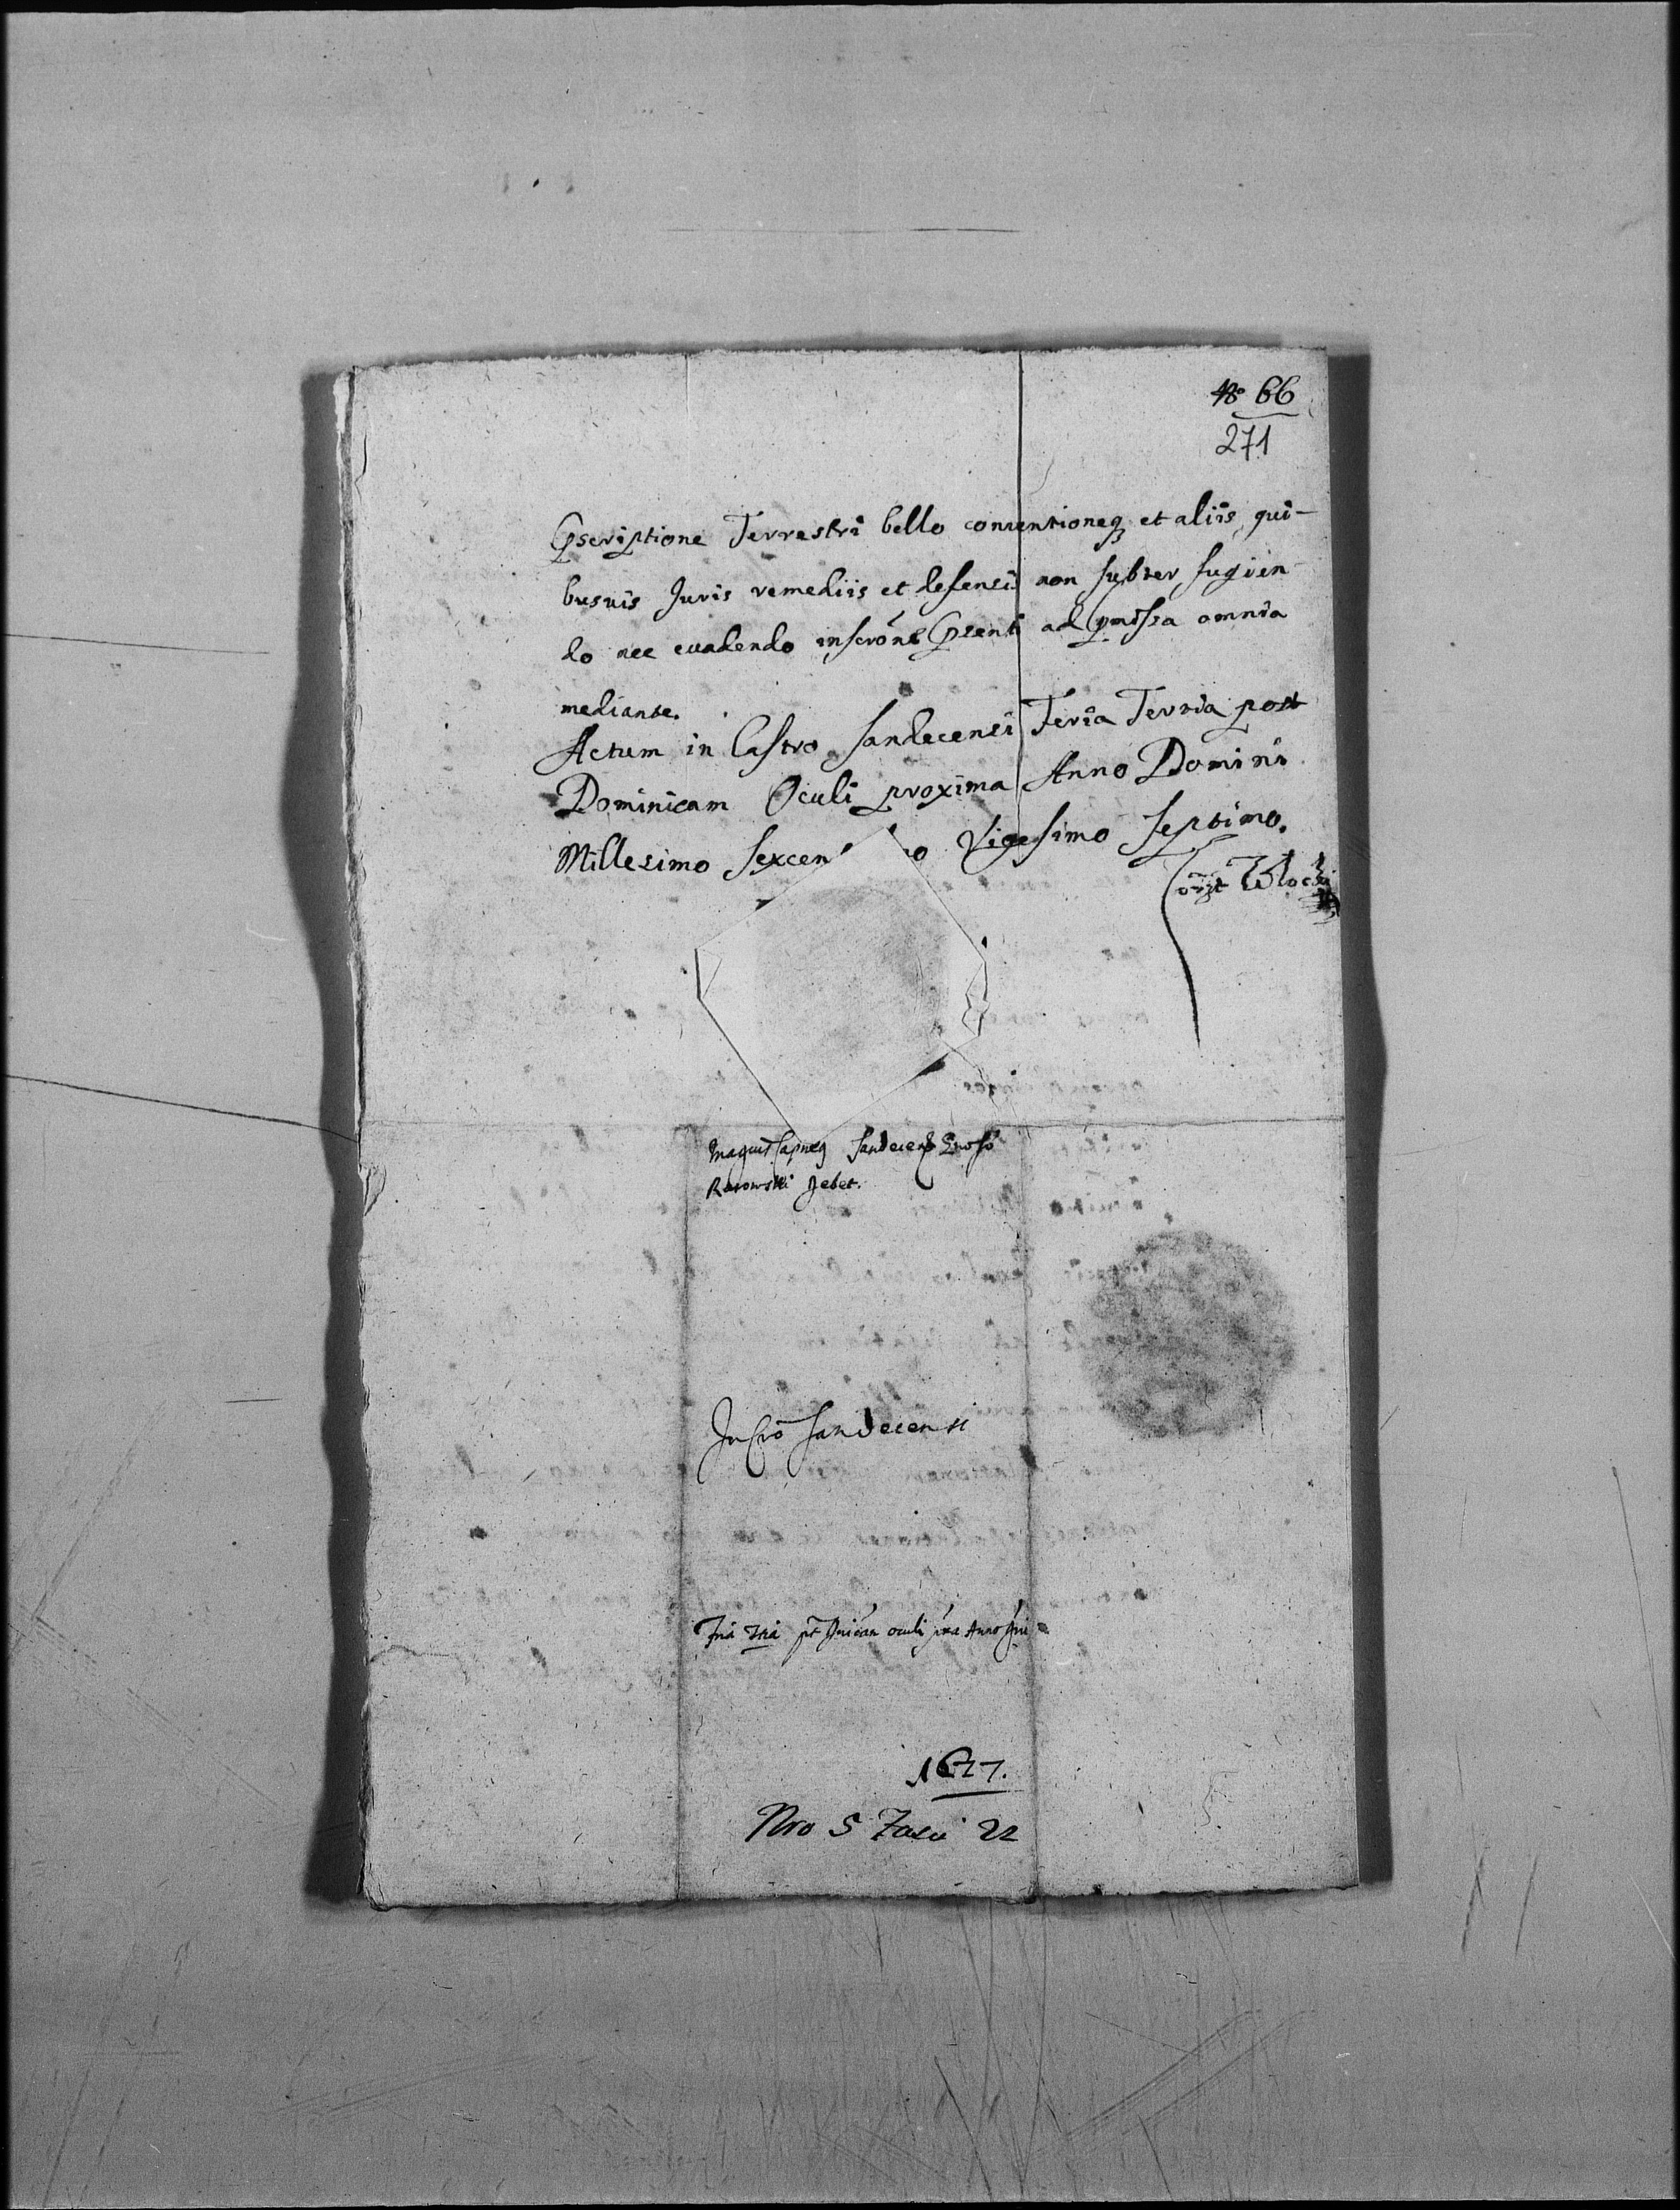 No 66
271
Pscriptione Terrestri bello conventioneq et aliis qui-
busvis Juris remediis et defensi non subter fugien
do nec evadendo inscrone Psenti ad pmissa omnia
mediante.
Actum in Castro Sandecensi Feria Tertia post
Dominicam Oculi proxima Anno Domini
Millesimo Sexcen o Vigesimo Septimo.
Magcus Capneq Sandecens Gnoso
Rosowski debet.
In Cro Sandecensi
Fria Tria pt Dnicam oculi pxa Anno Dni
1627.
Nro 5 Fasci 22